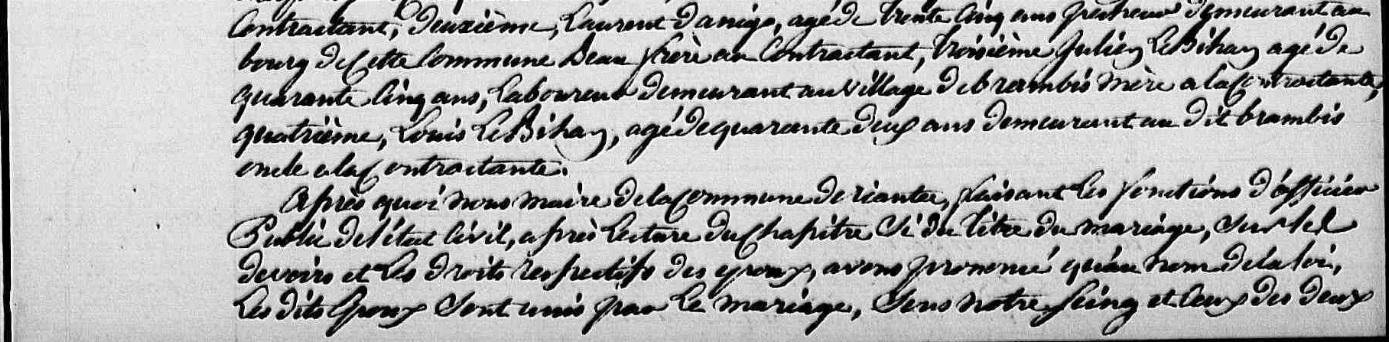 Contractant, deuxième, Laurent Danigo, agé de trente cinq ans pecheur demeurant au
bourg de Cette Commune Beau frère au Contractant, troisième Julien Le Bihan agé de
quarante Cinq ans, Laboureur demeurant au village de brambis mère a la Contractante,
quatrième, Louis Le Bihan, agé de quarante deux ans demeurant au dit brambis
oncle a la Contractante.
Après quoi nous maire de la Commune de riantec, faisant Les fonctions d'officier
Public de l'état Civil, après Lecture du Chapitre Si du titre du mariage, Sur Les
devoirs et Les droits respectifs des epoux, avons prononcé qu'au nom de la loi,
Les dits Epoux Sont unis par Le mariage, Sous notre Seing et Ceux des deux